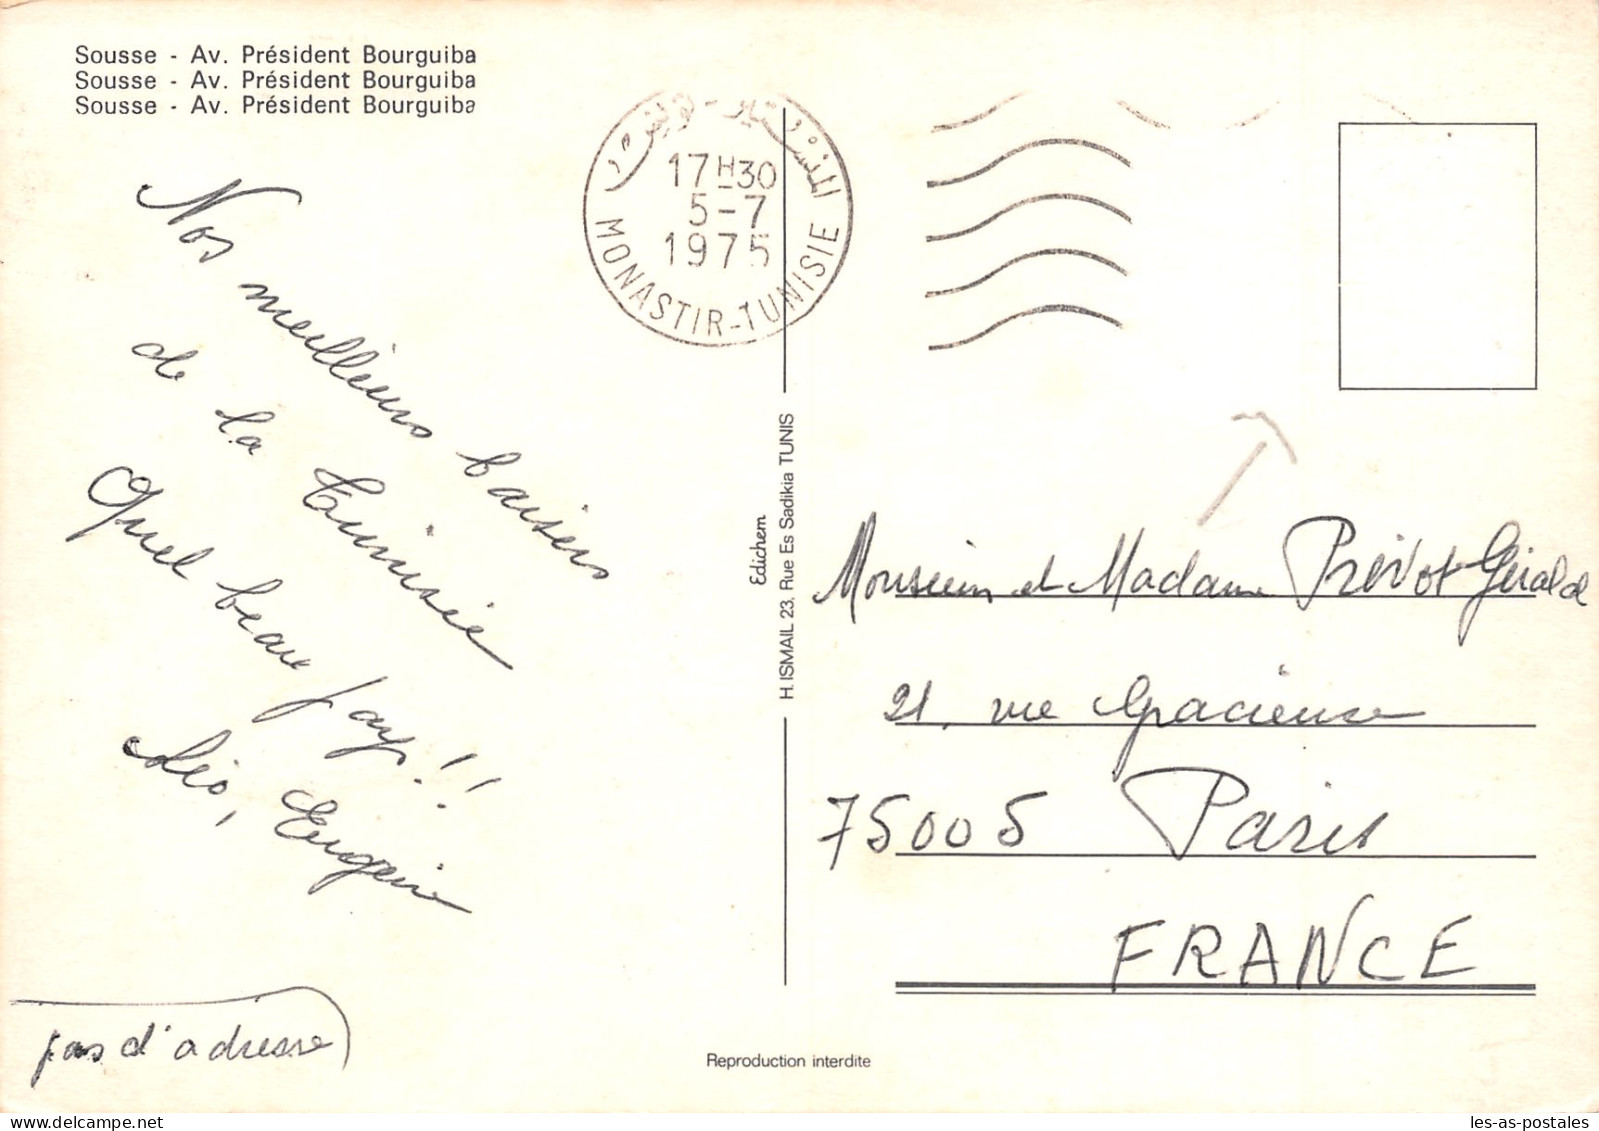 Sousse - Av. Président Bourguiba
Sousse - Av. Président Bourguiba
Sousse - Av. Président Bourguiba
17H30
5-7
1975
MONASTIR-TUNISIE
Nos meilleurs baisers
de la Tunisie
Quel beau pays!!
Léo, Eugénie
pas d'adresse
Edichem
H. ISMAIL 23, Rue Es Sadikia TUNIS
Monsieur et Madame Prévot Gérald
21, rue Gracieuse
75005 Paris
FRANCE
Reproduction interdite
les-as-postales